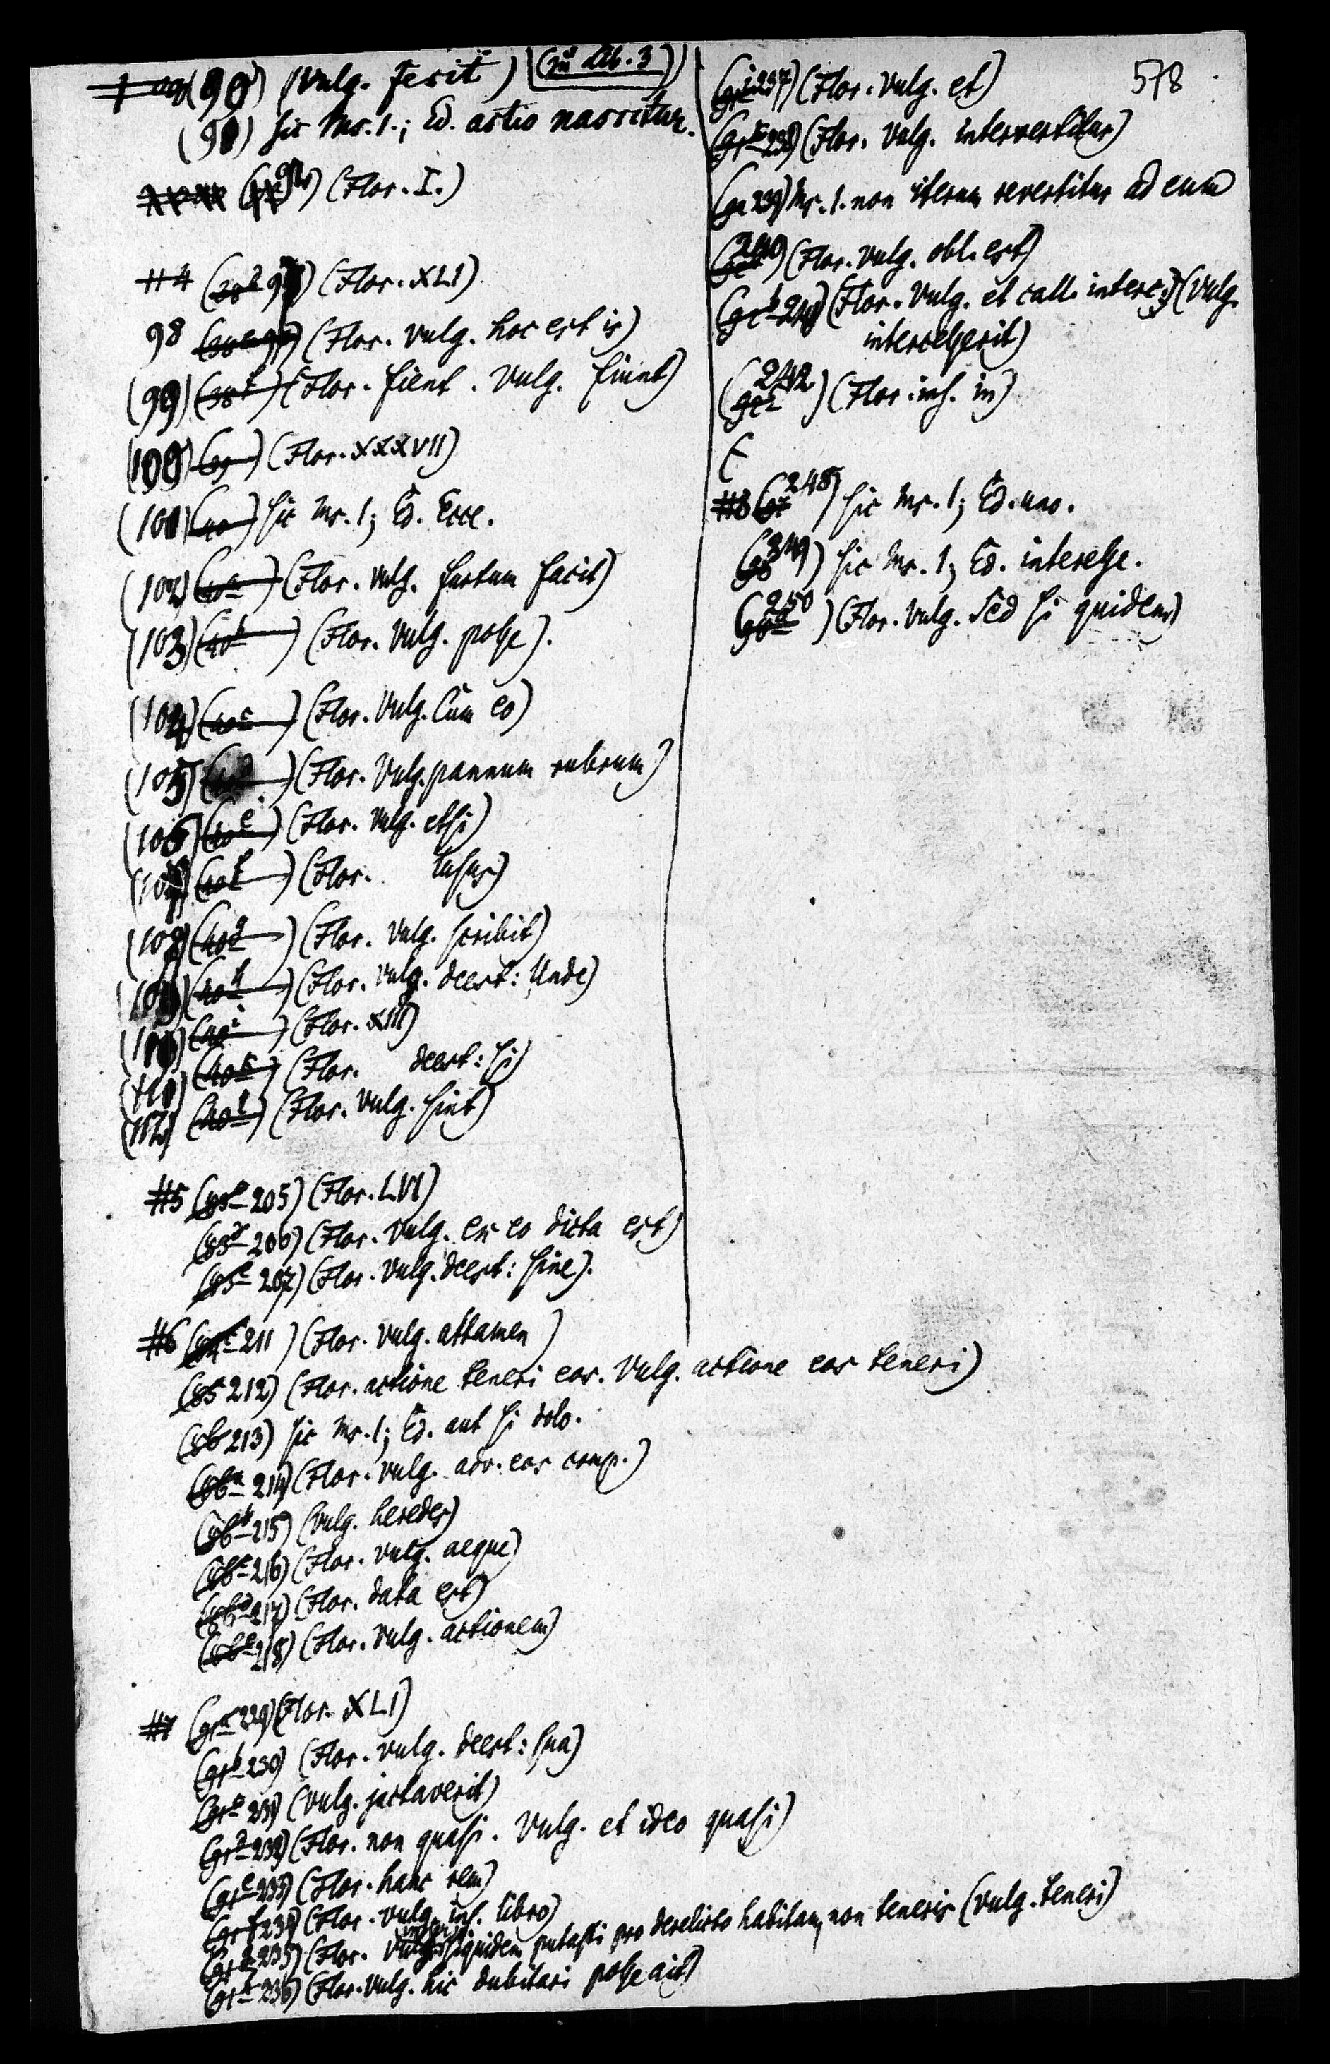 (90) (Vulg. fecit) (zu Lib. 3)
(91) sic Ms. 1.; Ed. actio nascitur.
(92) (Flor. I.)
#4 (97) (Flor. XLI)
98 (Flor. Vulg. hoc est is)
(99) (Flor. fient. Vulg. fiunt)
(100) (Flor. XXXVII)
(101) sic Ms. 1; Ed. Ecce.
(102) (Flor. Vulg. furtum facit)
(103) (Flor. Vulg. posse).
(104) (Flor. Vulg. Cum eo)
(105) (Flor. Vulg. pannum rubrum)
(106) (Flor. Vulg. etsi)
(107) (Flor. lusus)
(108) (Flor. Vulg. scribit)
(109) (Flor. Vulg. deest: Unde)
(110) (Flor. XIII)
(111) (Flor. deest: si)
(112) (Flor. Vulg. sint)
#5 (205) (Flor. LVI)
(206) (Flor. Vulg. ex eo dicta est)
(207) (Flor. Vulg. deest: sine).
#6 (211) (Flor. Vulg. attamen)
(212) (Flor. actione teneri eos. Vulg. actione eos teneri)
(213) sic Ms. 1; Ed. aut si dolo.
(214) (Flor. Vulg. adv. eos comp.)
(215) (Vulg. heredes)
(216) (Flor. Vulg. aeque)
(217) (Flor. data est)
(218) (Flor. Vulg. actionem)
#7 (229) (Flor. XLI)
(230) (Flor. Vulg. deest: sua)
(231) (Vulg. jactaverit)
(232) (Flor. non quasi. Vulg. et ideo quasi)
(233) (Flor. hanc rem)
(234) (Flor. Vulg. ins. libro)
(235) (Flor. siquidem putasti pro derelicto habitam, non teneris (Vulg. teneri)
(236) (Flor. Vulg. hic dubitari posse ait)
578
(237) (Flor. Vulg. et)
(238) (Flor. Vulg. intervertitur)
(239) Ms. 1. non iterum revertitur ad eum
(240) (Flor. Vulg. obl. est)
(Flor. Vulg. et call. interc.) (Vulg.
intercesserit)
(242) (Flor. ins. in)
(
#8 (248) sic Ms. 1; Ed. uno.
(249) sic Ms. 1; Ed. interesse.
(250) (Flor. Vulg. Sed si quidem)